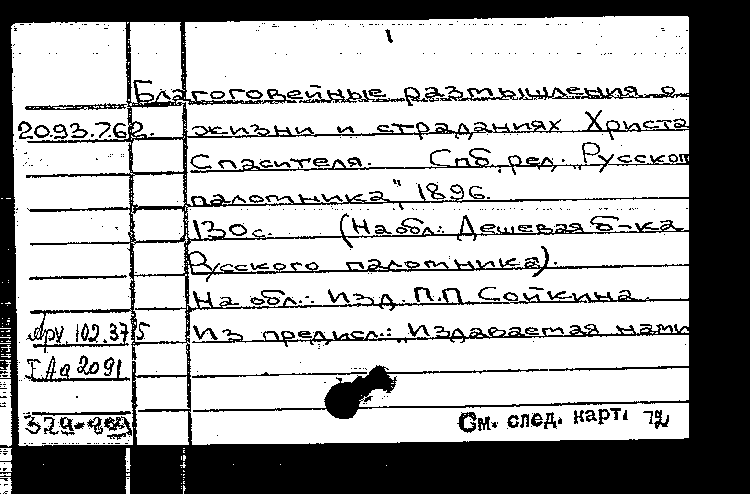 1
Благоговейные размышления о
2093.762. жизни и страданиях Христа
Спасителя. Спб, ред. „Русского
паломника", 1896.
130с. (На обл.: Дешевая б-ка
Русского паломника).
На обл.: Изд. П.П. Сойкина.
Ару 102.375 Из предисл.: „Издаваемая нами
I Аа 2091
См. след. карт. 72